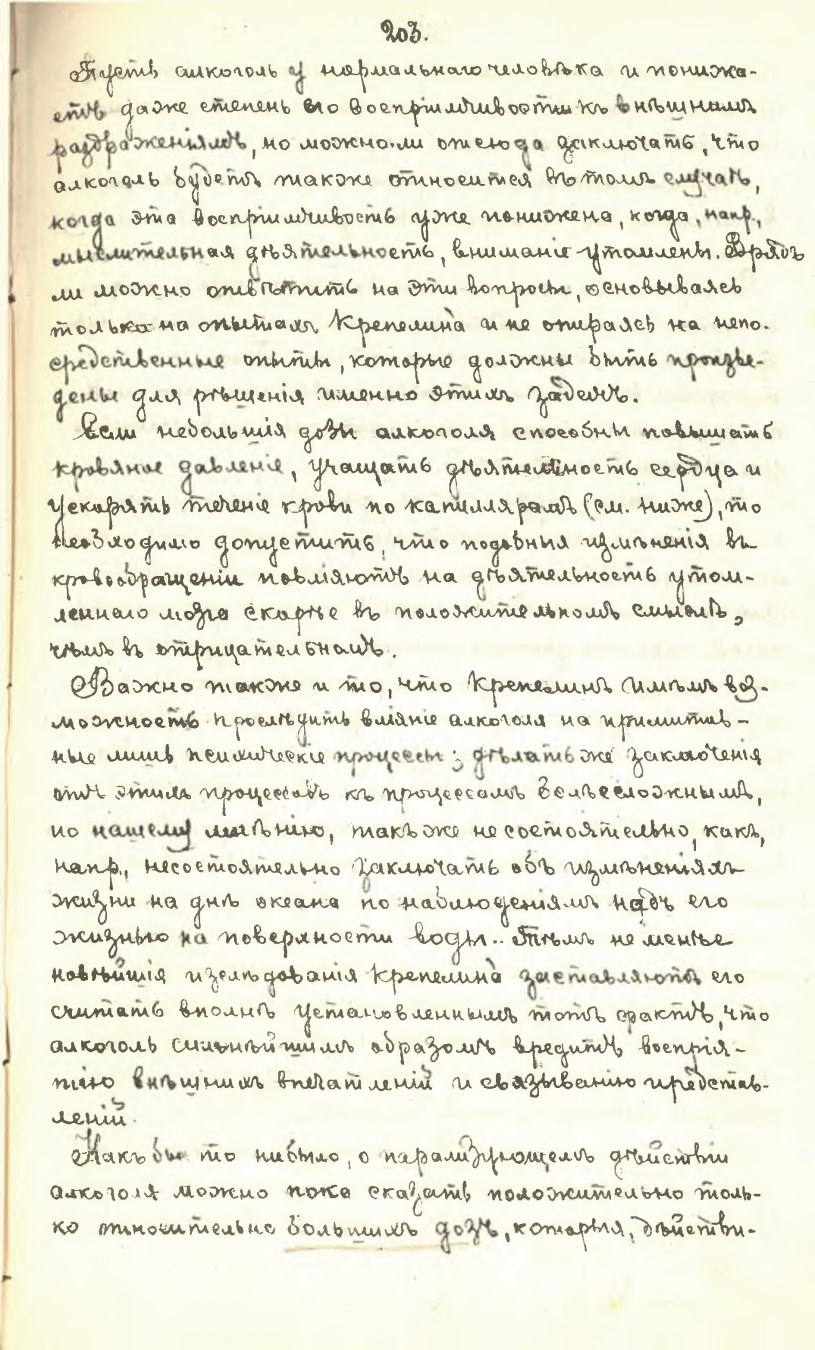 203.
Пусть алкоголь у нормальнаго человѣка и понижа-
етъ даже степень его воспріимчивости къ внѣшнимъ
раздраженіямъ, но можно-ли отсюда заключать, что
алкоголь будетъ также относится въ томъ случаѣ,
когда эта воспріимчивость уже понижена, когда, напр.,
мыслительная дѣятельность, вниманіе утомлены. Врядъ
ли можно отвѣтить на эти вопросы, основываясь
только на опытахъ Крепелина и не опираясь на непо-
средственные опыты, которые должны быть произве-
дены для рѣшенія именно этихъ задачъ.
Если небольшія дозы алкоголя способны повышать
кровяное давленіе, учащать дѣятельность сердца и
ускорять теченіе крови по капиллярамъ (см. ниже), то
необходимо допустить, что подобныя измѣненія въ
кровообращеніи повліяютъ на дѣятельность утом-
леннаго мозга скорѣе въ положительномъ смыслѣ,
чѣмъ въ отрицательномъ.
Важно также и то, что Крепелинъ имѣлъ воз-
можность прослѣдить вліяніе алкоголя на примитив-
ные лишь психическіе процессы; дѣлать же заключенія
отъ этихъ процессовъ къ процессамъ болѣе сложнымъ,
по нашему мнѣнію, такъ же несостоятельно, какъ,
напр., несостоятельно заключать объ измѣненіяхъ
жизни на днѣ океана по наблюденіямъ надъ его
жизнью на поверхности воды.. Тѣмъ не менѣе
новѣйшія изслѣдованія Крепелина заставляютъ его
считать вполнѣ установленнымъ тотъ фактъ, что
алкоголь сильнѣйшимъ образомъ вредитъ воспрія-
тію внѣшнихъ впечатленій и связыванію представ-
леній.
Какъ бы то нибыло, о парализующемъ дѣйствіи
алкоголя можно пока сказать положительно толь-
ко относительно большихъ дозъ, которыя, дѣйстви-